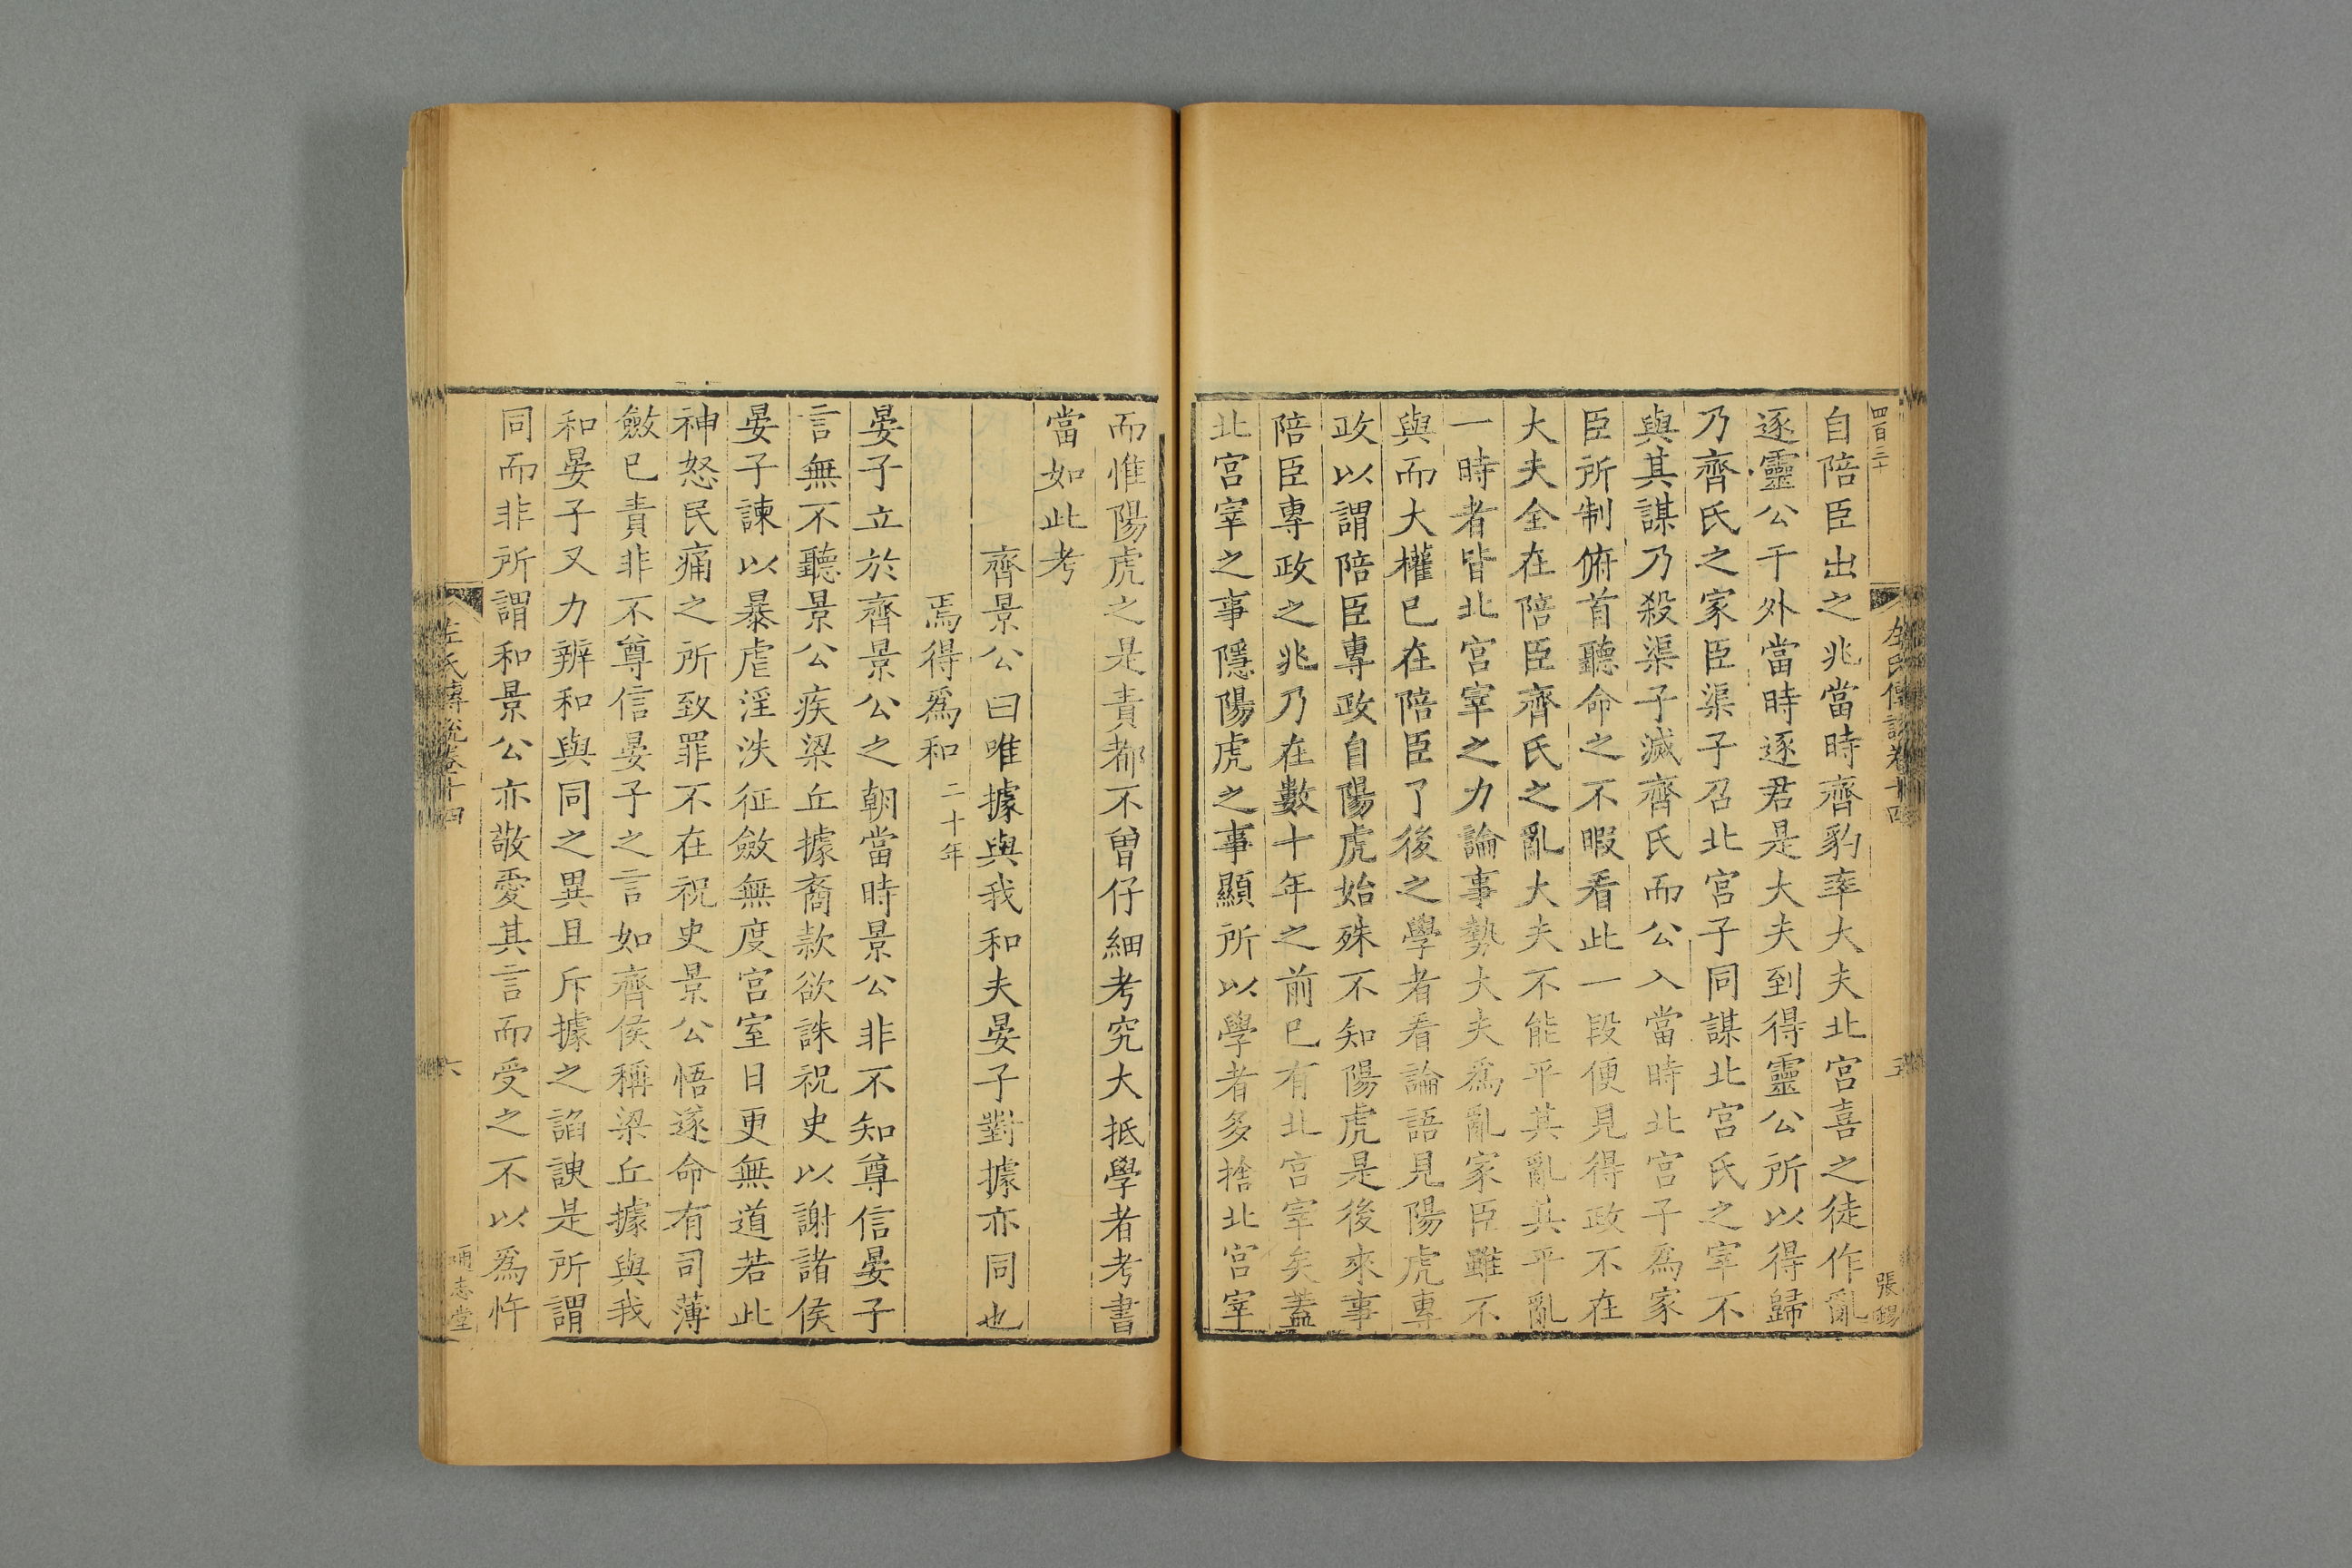 四百三十
左氏傳說卷十四
五
張錫
自陪臣出之兆當時齊豹率大夫北宮喜之徒作亂
逐靈公于外當時逐君是大夫到得靈公所以得歸
乃齊氏之家臣渠子召北宮子同謀北宮氏之宰不
與其謀乃殺渠子滅齊氏而公入當時北宮子爲家
臣所制俯首聽命之不暇看此一段便見得政不在
大夫全在陪臣齊氏之亂大夫不能平其亂其平亂
一時者皆北宮宰之力論事勢大夫爲亂家臣雖不
與而大權已在陪臣了後之學者看論語見陽虎專
政以謂陪臣專政自陽虎始殊不知陽虎是後來事
陪臣專政之兆乃在數十年之前已有北宮宰矣蓋
北宮宰之事隱陽虎之事顯所以學者多捨北宮宰
而惟陽虎之是責都不曾仔細考究大抵學者考書
當如此考
齊景公曰唯據與我和夫晏子對據亦同也
焉得爲和二十年
晏子立於齊景公之朝當時景公非不知尊信晏子
言無不聽景公疾梁丘據裔款欲誅祝史以謝諸侯
晏子諫以暴虐淫泆征斂無度宮室日更無道若此
神怒民痛之所致罪不在祝史景公悟遂命有司薄
斂已責非不尊信晏子之言如齊侯稱梁丘據與我
和晏子又力辨和與同之異且斥據之諂諛是所謂
同而非所謂和景公亦敬愛其言而受之不以爲忤
左氏傳說卷十四
六
通志堂